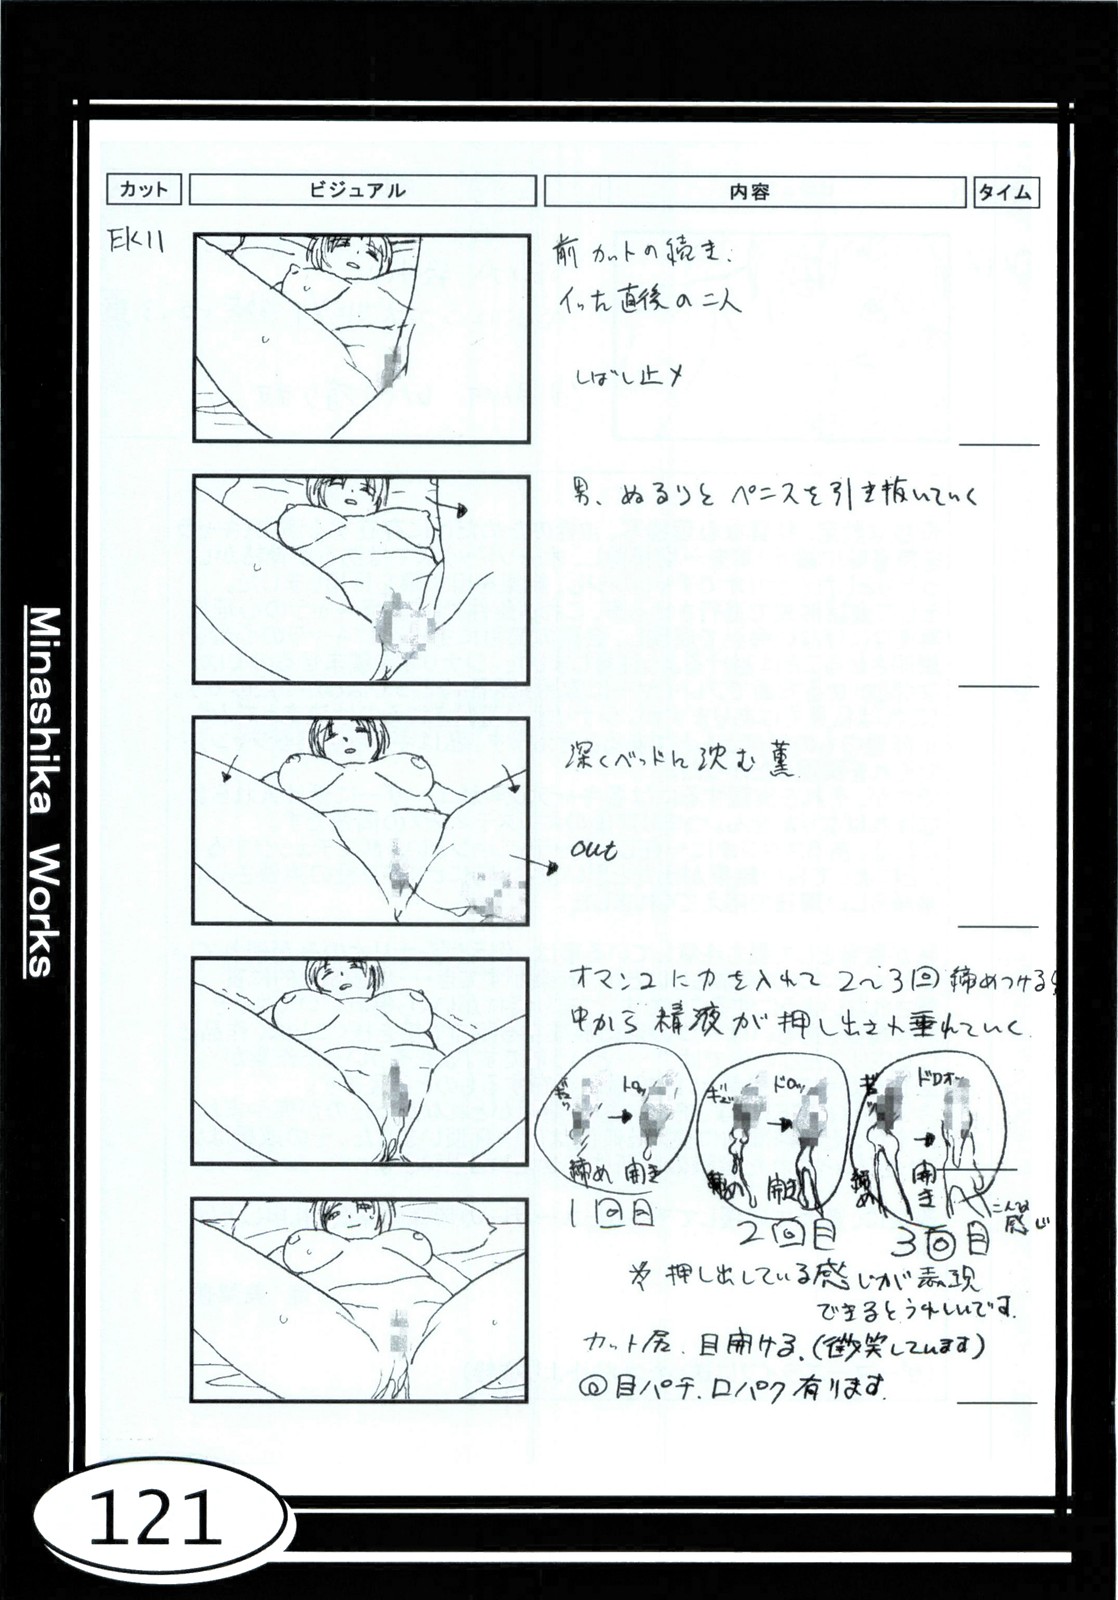 カット
ビジュアル
内容
タイム
EK11
前カットの続き.
イッた直後の二人
しばし止メ
男、ぬるりとペニスを引き抜いていく
深くベッドに沈む薫
out
オマンコに力を入れて2〜3回締めつける
中から精液が押し出され垂れていく.
ギュッ
ドロッ
締め
開き
1回目
ギュッ
ドロッ
締め
開き
2回目
ギュッ
ドロォー
締め
開き
こんな
感じ
3回目
※押し出している感じが表現
できるとうれしいです.
カット尻.目開ける.(微笑しています)
◎目パチ.口パク有ります.
Minashika Works
121